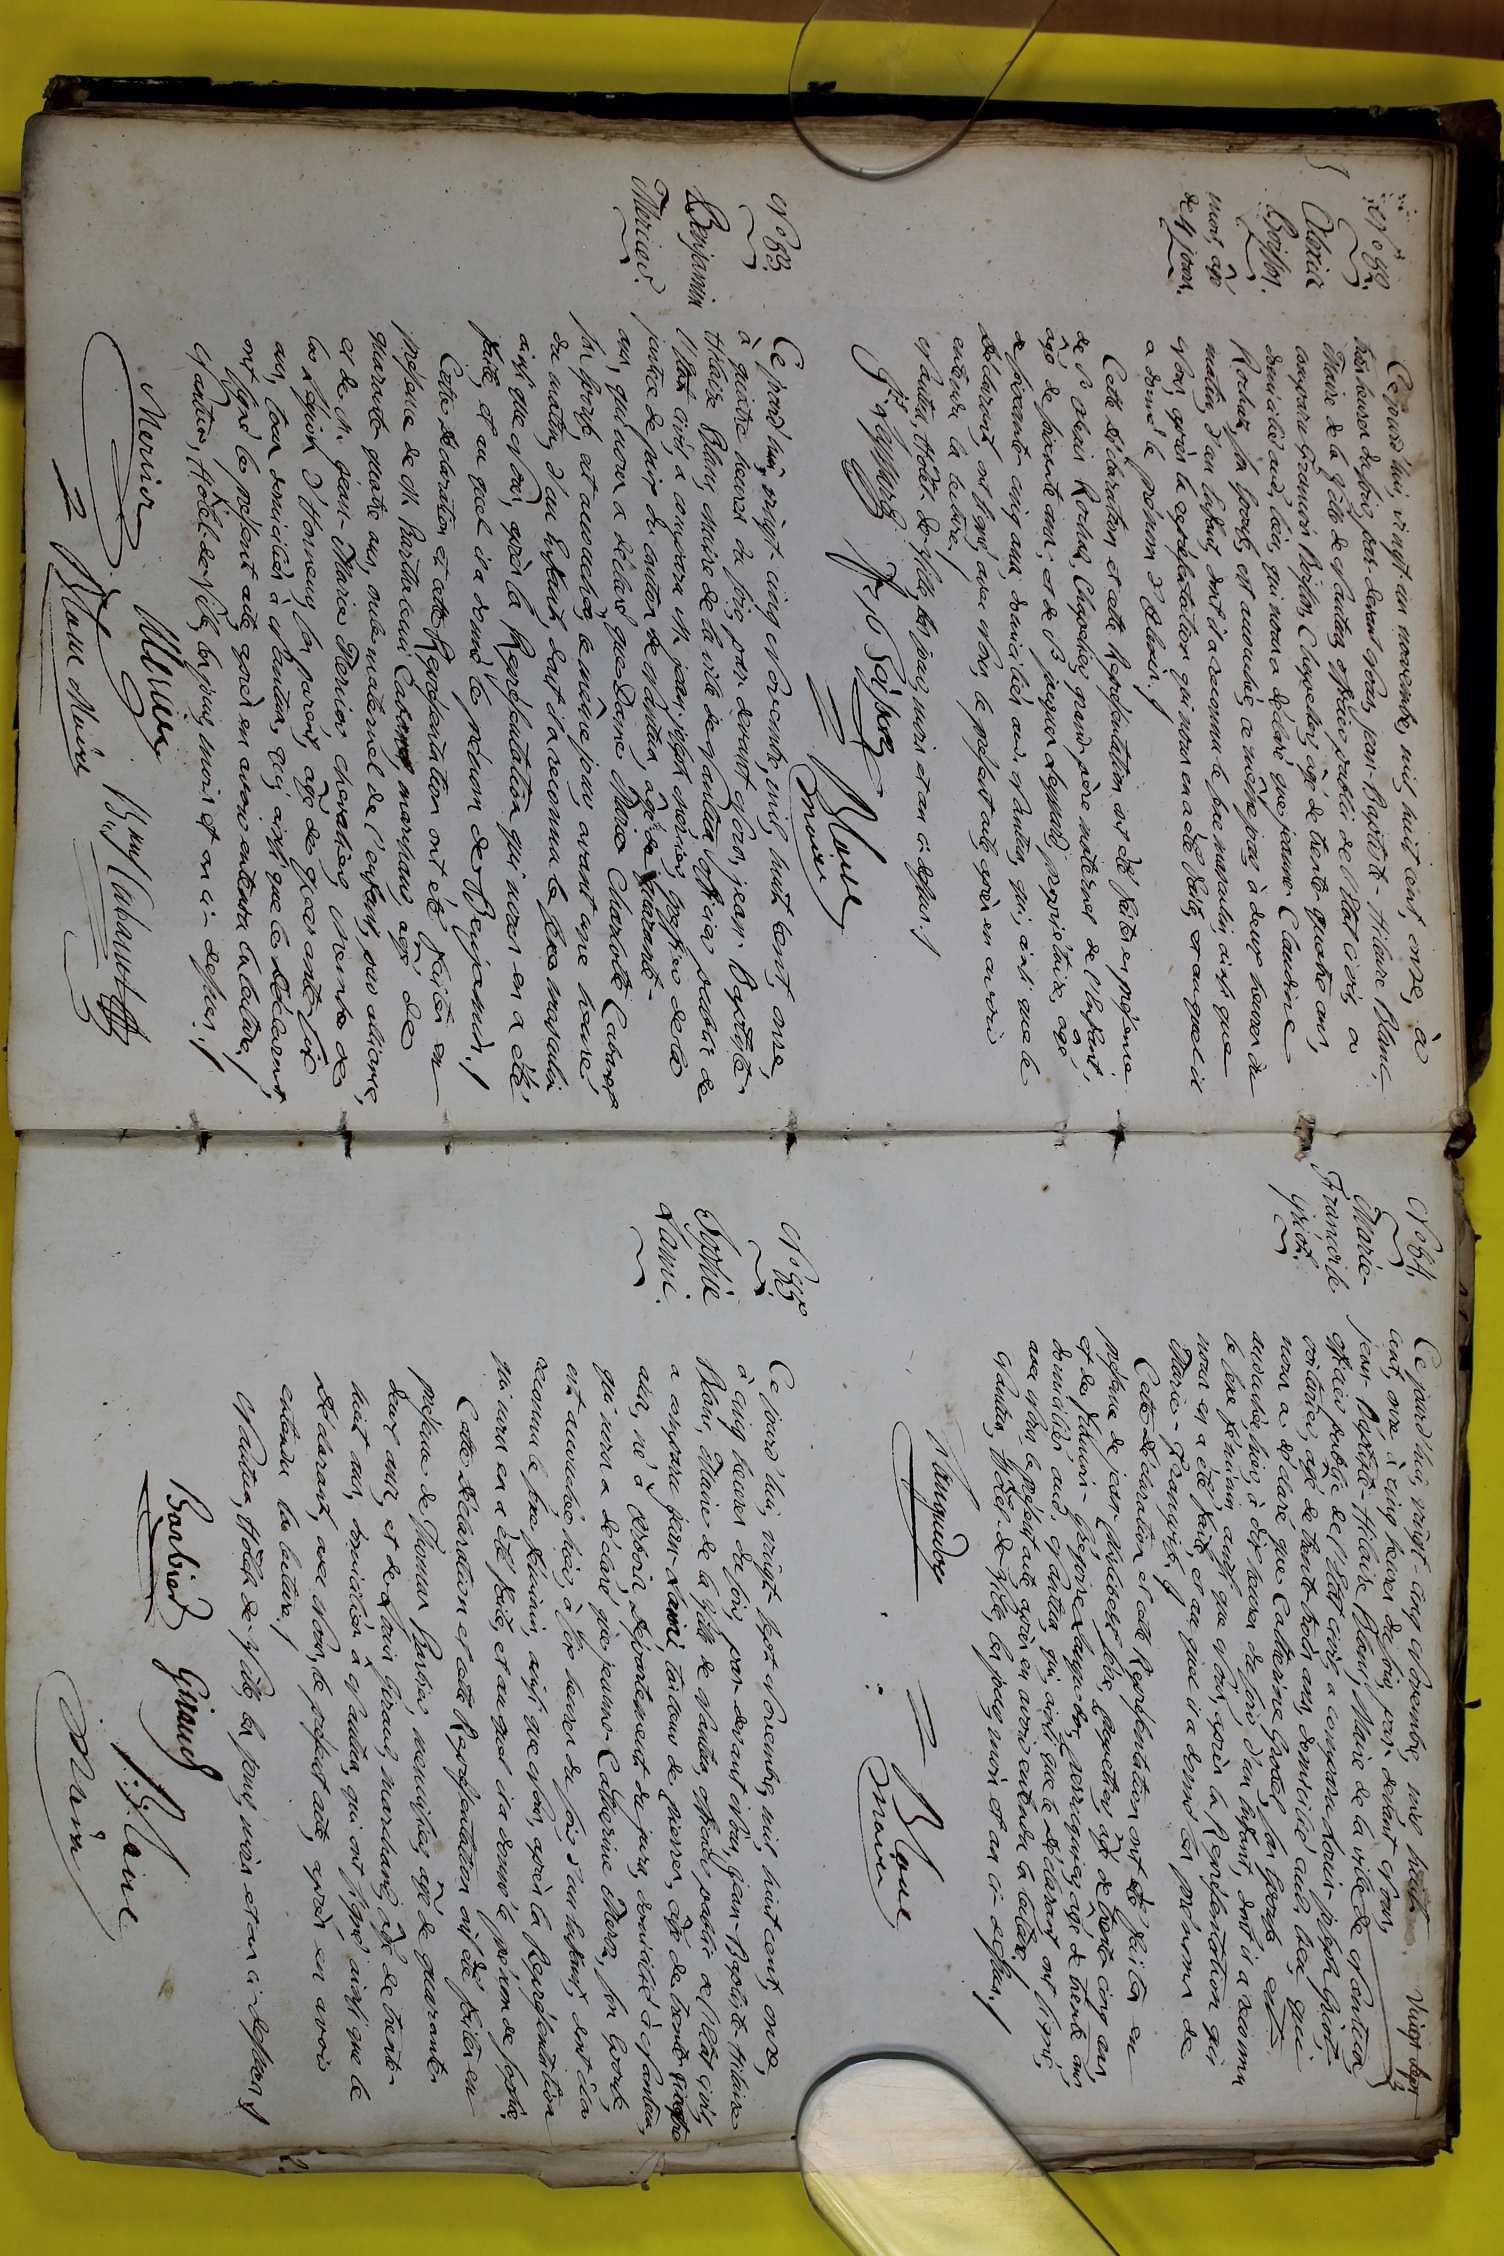 N.° 82.
Alexis
Boisson.
mort, âgé
de 4 jours.
Ce jourd'hui, vingt un novembre, mil huit cent, onze, à
trois heures du soir, par-devant Nous, jean-Baptiste-Hilaire Blanc,
Maire de la Ville de Nantua, officier public de l'État civil, a
comparu Boisson, Chapelier, âgé de trente quatre ans,
domicilié aud. lieu, qui nous a déclaré, que jeanne Claudine
Rochas, son épouse, est accouchée, ce même jour, à douze heures du
matin, d'un Enfant, dont il a reconnu le sexe masculin, ainsi que
Nous, après la représentation qui nous en a été faite, et auquel il
a donné le prénom d'Alexis./
Cette déclaration et cette Représentation ont été faites en présence
de S. Rochas, Chapelier, grand-père maternel de l'Enfant,
âgé de soixante ans, et de S. jacques propriétaire, âgé
de soixante cinq ans, domiciliés aud. Nantua, qui, ainsi que le
déclarant, ont signé, avec Nous, le présent acte, après en avoir
entendu la lecture,
Nantua, Hôtel-de-Ville, les jour, mois et an ci-dessus./
Blanc
maire
N.° 83.
Benjamin
Mercier.
Ce jourd'hui, vingt-cinq Novembre, mil, huit cent, onze,
à quatre heures du soir, par-devant Nous, jean-Baptiste-
Hilaire Blanc, maire de la ville de Nantua, officier public de
l'État civil, a comparu M. jean-joseph Mercier, greffier de la
justice de paix du canton de Nantua, âgé de quarante-
ans, qui nous a déclaré, que Dame Marie Charlotte Cabanet
son épouse, est accouchée, ce même jour, avant une heure,
du matin, d'un Enfant, dont il a reconnu le sexe masculin
ainsi que Nous, après la Représentation qui nous en a été
faite, et au quel il a donné le prénom de Benjamin./
Cette déclaration et cette Représentation ont été faites en
présence de M. Barthélemi Cabanet, marchand, âgé de
quarante quatre ans, oncle maternel de l'enfant, par alliance,
et de M. jean-Marie chevalier, membre de
la Légion d'Honneur, son parent, âgé de
ans, tous domiciliés à Nantua, qui, ainsi que le déclarant,
ont signé le présent acte, après en avoir entendu la lecture,/
Nantua, Hôtel-de-Ville, les jour, mois et an ci-dessus./
Mercier
Blanc Maire
Vingt Sept
N.° 84.
Marie-
Françoise
Griot.
Ce jourd'hui, vingt-cinq Novembre, mil huit
cent, onze, à cinq heures du soir, par-devant Nous,
jean-Baptiste-Hilaire Blanc, Maire de la ville de Nantua
officier public de l'État civil, a comparu Louis-joseph Griot,
voiturier, âgé de trente-trois ans, domicilié aud. lieu, qui
nous a déclaré que Catherine Grostel, son épouse, est
accouchée, hier, à dix heures du soir, d'un Enfant, dont il a reconnu
le sexe féminin, ainsi que Nous, après la Représentation qui
nous en a été faite, et au quel il a donné les prénoms de
Marie-Françoise./
Cette déclaration et cette Représentation ont été faites en
présence de jean Michel chapelier, âgé de trente cinq ans,
et de perruquier, âgé de trente ans
domiciliés aud. Nantua, qui, ainsi que le déclarant ont signé,
avec Nous, le présent acte, après en avoir entendu la lecture,
Nantua, Hôtel-de-Ville, les jour, mois et an ci-dessus./
Blanc
maire
N.° 85.
Sophie
Lami.
Ce jourd'hui, vingt-sept Novembre, mil, huit cent, onze,
à cinq heures du soir, par-devant Nous, jean-Baptiste-Hilaire
Blanc, Maire de la Ville de Nantua, officier public de l'État civil,
a comparu jean-Lami tailleur de pierres, âgé de trente-quatre
ans, né à département du jura, domicilié à Nantua,
qui nous a déclaré, que jeanne-Catherine son épouse,
est accouchée hier, à six heures du soir, d'un Enfant, dont il a
reconnu le sexe féminin, ainsi que Nous, après la Représentation
qui nous en a été faite, et au quel il a donné le prénom de Sophie,
Cette déclaration et cette Représentation ont été faites en
présence de Thomas Barbier, menuisier, âgé de quarante-
deux ans, et de Louis Giraud, marchand, âgé de trente-
huit ans, domiciliés à Nantua, qui ont signé ainsi que le
déclarant, avec Nous, le présent acte, après en avoir
entendu la lecture,/
Nantua, Hôtel-de-Ville, les jour, mois et an ci-dessus./
Barbier
Giraud
Blanc,
Maire